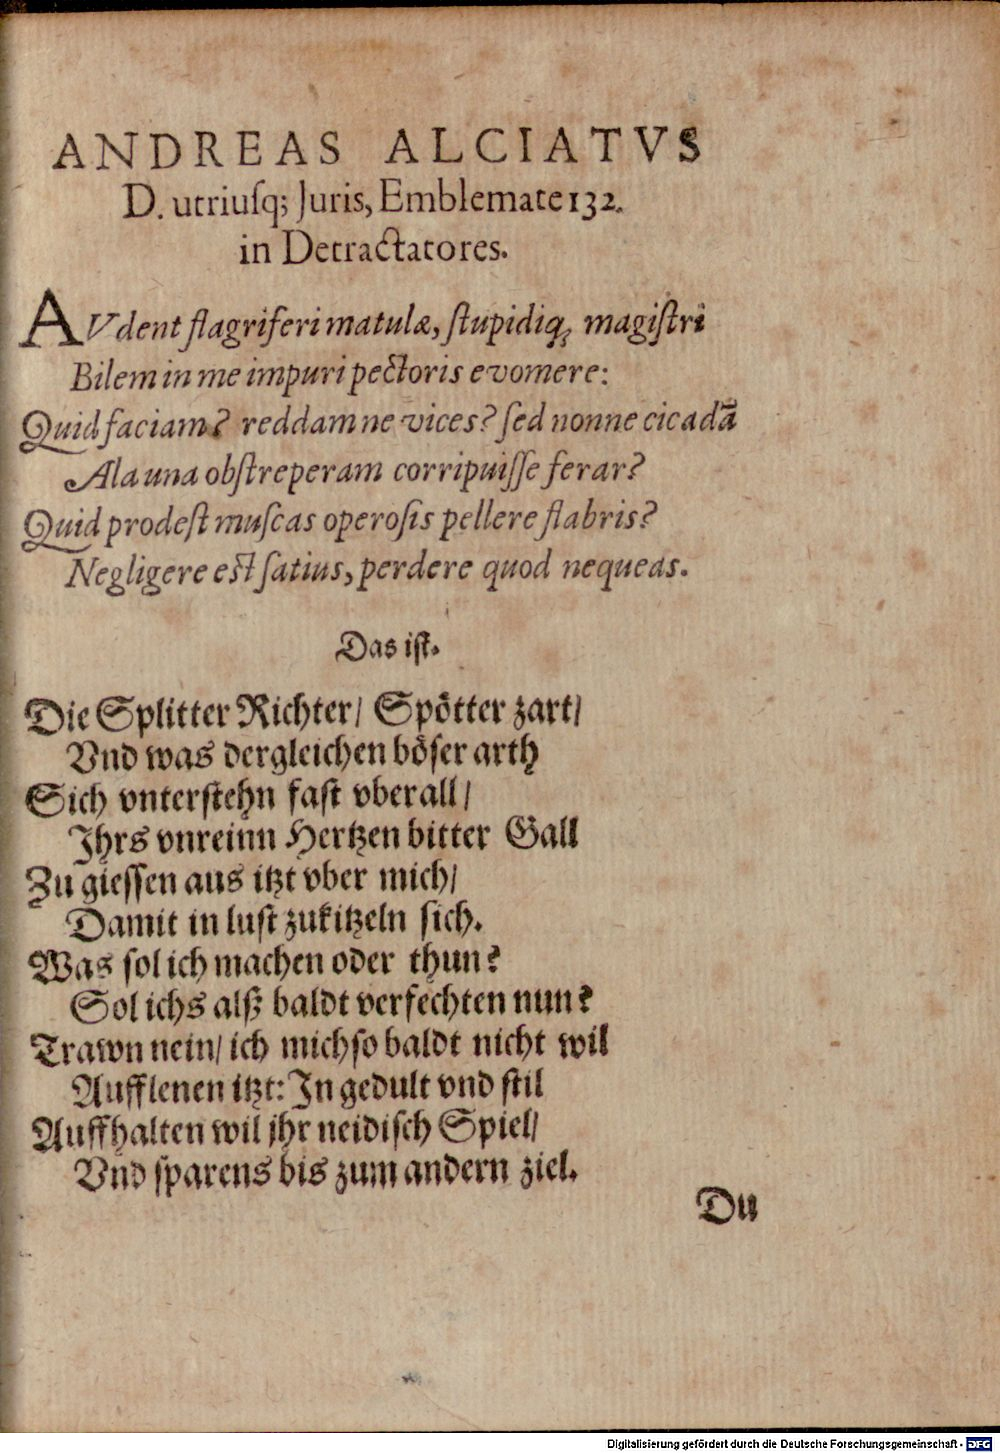 ANDREAS ALCIATVS
D. utriusq; Juris, Emblemate 132.
in Detractatores.
AVdent flagriferi matulæ, stupidiq; magistri
Bilem in me impuri pectoris evomere:
Quid faciam? reddamne vices? sed nonne cicadã
Ala una obstreperam corripuisse ferar?
Quid prodest muscas operosis pellere flabris?
Negligere est satius, perdere quod nequeas.
Das ist.
Die Splitter Richter/ Spötter zart/
Vnd was dergleichen böser arth
Sich vnterstehn fast vberall/
Ihrs vnreinn Hertzen bitter Gall
Zu giessen aus itzt vber mich/
Damit in lust zukitzeln sich.
Was sol ich machen oder thun?
Sol ichs alß baldt verfechten nun?
Trawn nein/ ich mich so baldt nicht wil
Aufflenen itzt: In gedult vnd stil
Auffhalten wil jhr neidisch Spiel/
Vnd sparens bis zum andern ziel.
Du
Digitalisierung gefördert durch die Deutsche Forschungsgemeinschaft - DFG